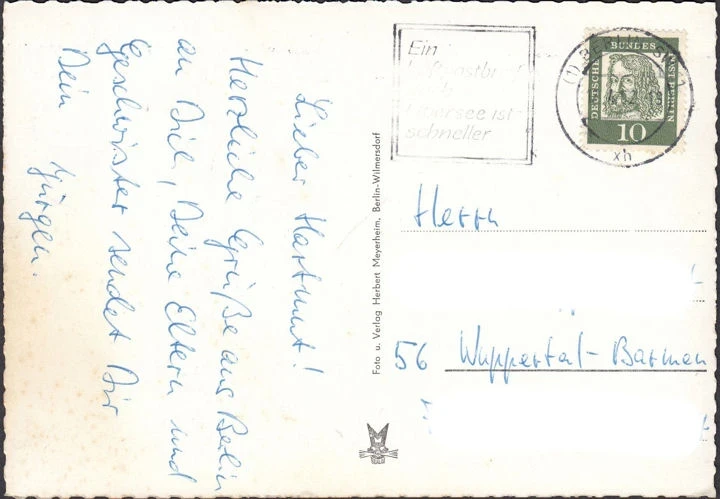 Lieber Hartmut!
Herzliche Grüße aus Berlin
an Dich, Deine Eltern und
Geschwister sendet Dir
Dein Jürgen.
Foto u. Verlag Herbert Meyerheim, Berlin-Wilmersdorf
Ein
Luftpostbrief
Übersee ist
schneller
(1) BERLIN SW
xh
DEUTSCHE BUNDESPOST BERLIN
10
Herrn
56 Wuppertal-Barmen